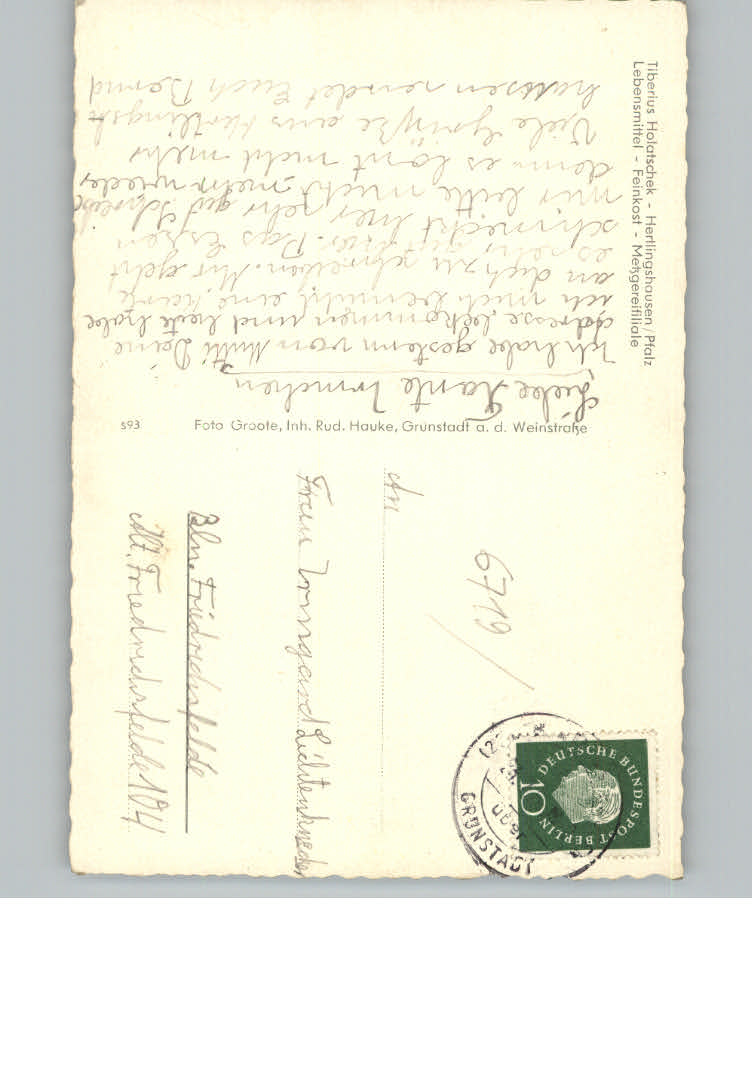 Tiberius Holatschek - Hertlingshausen/Pfalz
Lebensmittel - Feinkost - Metzgereifiliale
Liebe Tante Irmchen
Ich habe gestern von Mutti Deine
Adresse bekommen und heute habe
ich mich bemüht eine Karte
an dich zu schreiben. Mir geht
es sehr gut hier. Das Essen
schmeckt hier sehr gut. Schreibe
mir bitte nicht mehr wieder
denn es lont nicht mehr
Viele Grüße aus Hertlingsh
hausen sendet Euch Bernd
s93
Foto Groote, Inh. Rud. Hauke, Grünstadt a. d. Weinstraße
6719
An
Frau Irmgard
Bln. Friedrichsfelde
Alt. Friedrichsfelde 104
DEUTSCHE BUNDESPOST BERLIN
10
GRÜNSTADT